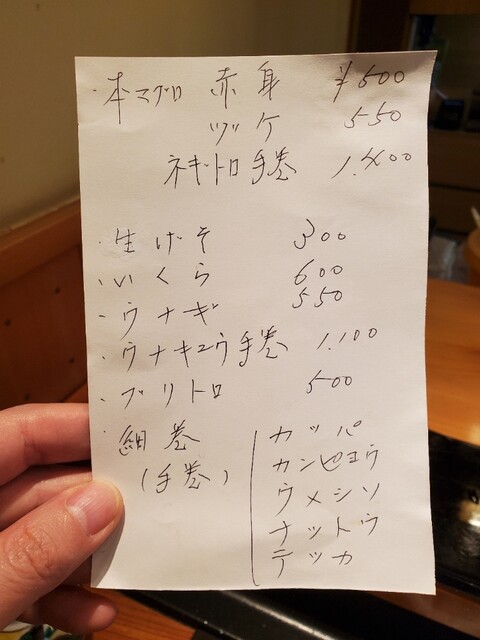 ・本マグロ 赤身 ¥500
ヅケ 550
ネギトロ手巻 1.400
・生げそ 300
・いくら 600
・ウナギ 550
・ウナキュウ手巻 1.100
・ブリトロ 500
・細巻
(手巻)
カッパ
カンピョウ
ウメシソ
ナットウ
テッカ